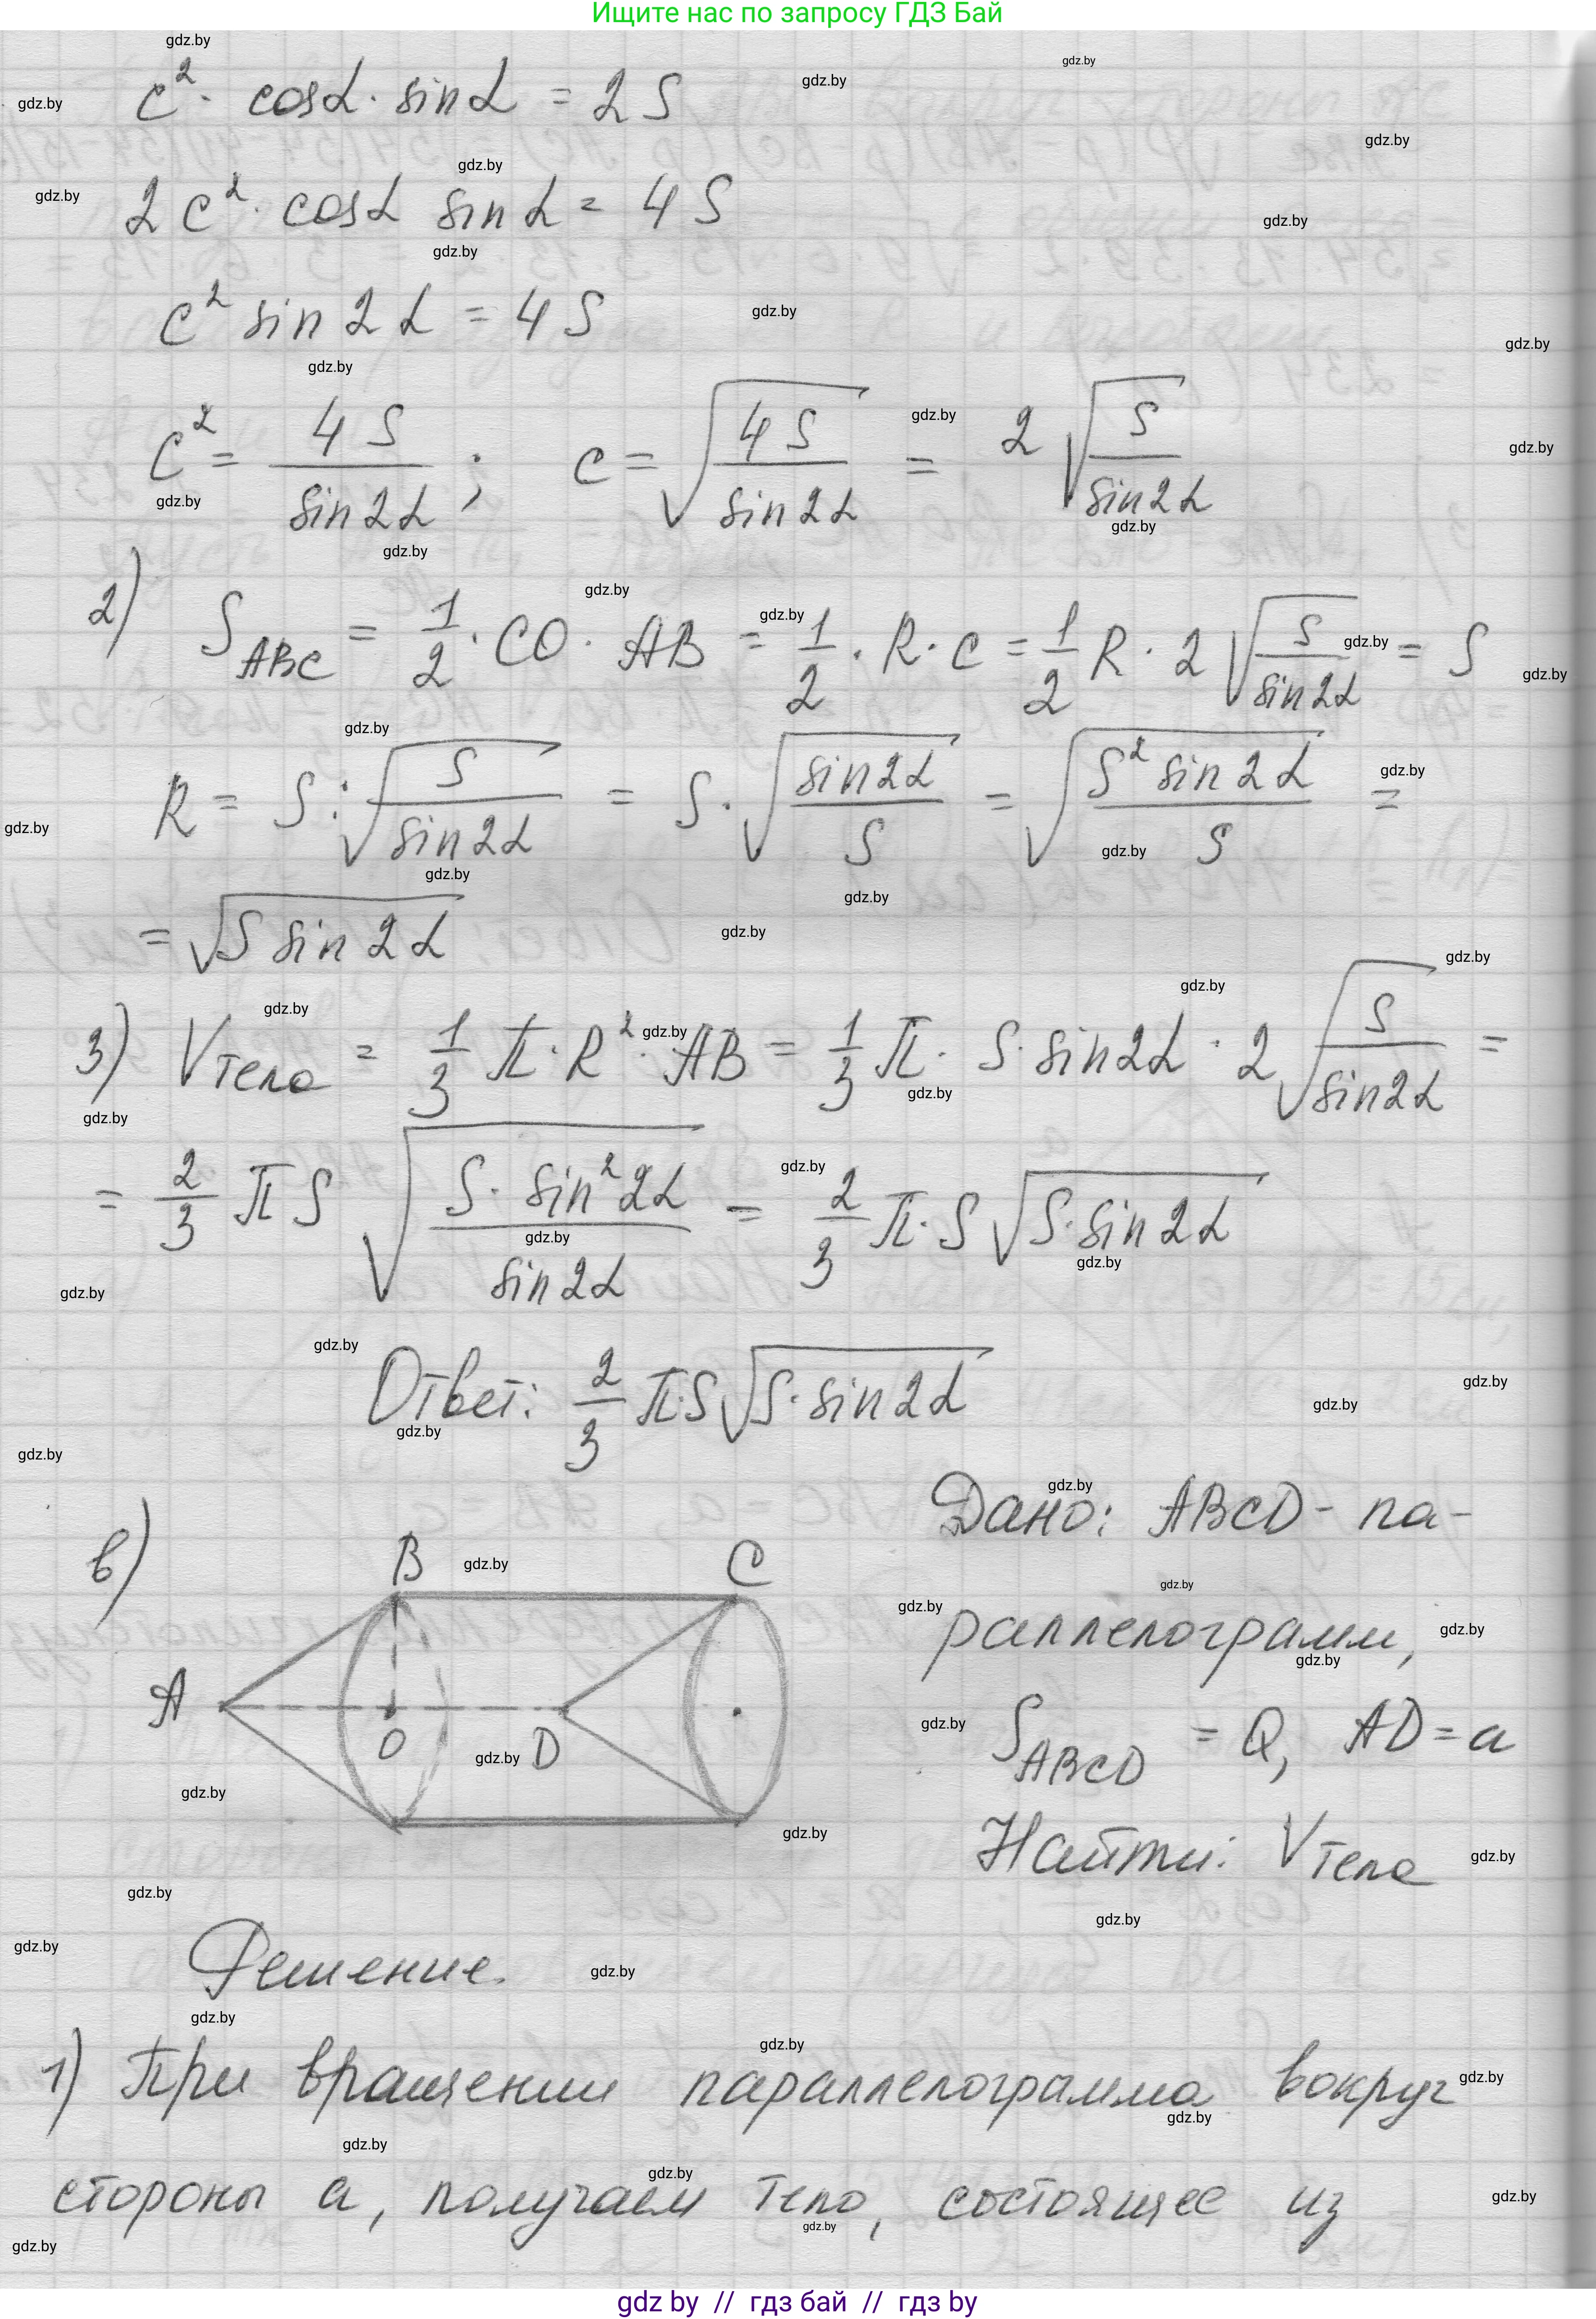 Ищите нас по запросу ГДЗ Бай
c² · cosα · sinα = 2S
2c² · cosα sinα = 4S
c² sin2α = 4S
c² = 4S / sin2α ; c = √(4S / sin2α) = 2√(S / sin2α)
2) S_ABC = 1/2 · CO · AB = 1/2 · R · c = 1/2 R · 2√(S / sin2α) = S
R = S : √(S / sin2α) = S · √(sin2α / S) = √(S² sin2α / S) =
= √(S sin2α)
3) V тела = 1/3 π · R² · AB = 1/3 π · S · sin2α · 2√(S / sin2α) =
= 2/3 πS √(S · sin²2α / sin2α) = 2/3 π · S √(S · sin2α)
Ответ: 2/3 π·S√(S · sin2α)
в)
B
C
A
O
D
Дано: ABCD - па-
раллелограмм,
S_ABCD = Q, AD = a
Найти: V тела
Решение.
1) При вращении параллелограмма вокруг
стороны a, получаем тело, состоящее из
gdz by // гдз бай // гдз by
gdz.by